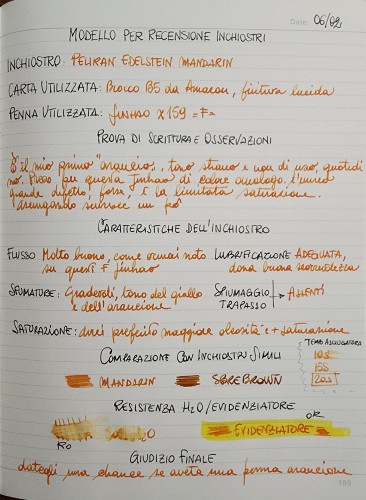 Date: 06/02
MODELLO PER RECENSIONE INCHIOSTRI
INCHIOSTRO: PELIKAN EDELSTEIN MANDARIN
CARTA UTILIZZATA: Blocco B5 da Amazon, finitura lucida
PENNA UTILIZZATA: JINHAO X159 =F=
PROVA DI SCRITTURA E OSSERVAZIONI
È il mio primo "arancio", tono strano e non di uso quotidia
no. Preso per questa Jinhao di colore analogo. l'unico
grande difetto, forse, è la limitata saturazione.
asciugando schiarisce un po'
CARATTERISTICHE DELL'INCHIOSTRO
FLUSSO Molto buono, come ormai noto
su questi F jinhao
LUBRIFICAZIONE ADEGUATA,
dona buona scorrevolezza
SFUMATURE: Gradevoli, tono del giallo
e dell'arancione
SPIUMAGGIO
TRAPASSO
ASSENTI
SATURAZIONE: avrei preferito maggiore oleosità e + saturazione
COMPARAZIONE CON INCHIOSTRI SIMILI
TEMPO ASCIUGATURA
10s
15s
20s
MANDARIN
RESISTENZA H2O/EVIDENZIATORE
OK
H2O
EVIDENZIATORE
GIUDIZIO FINALE
dategli una chance se avete una penna arancione
169